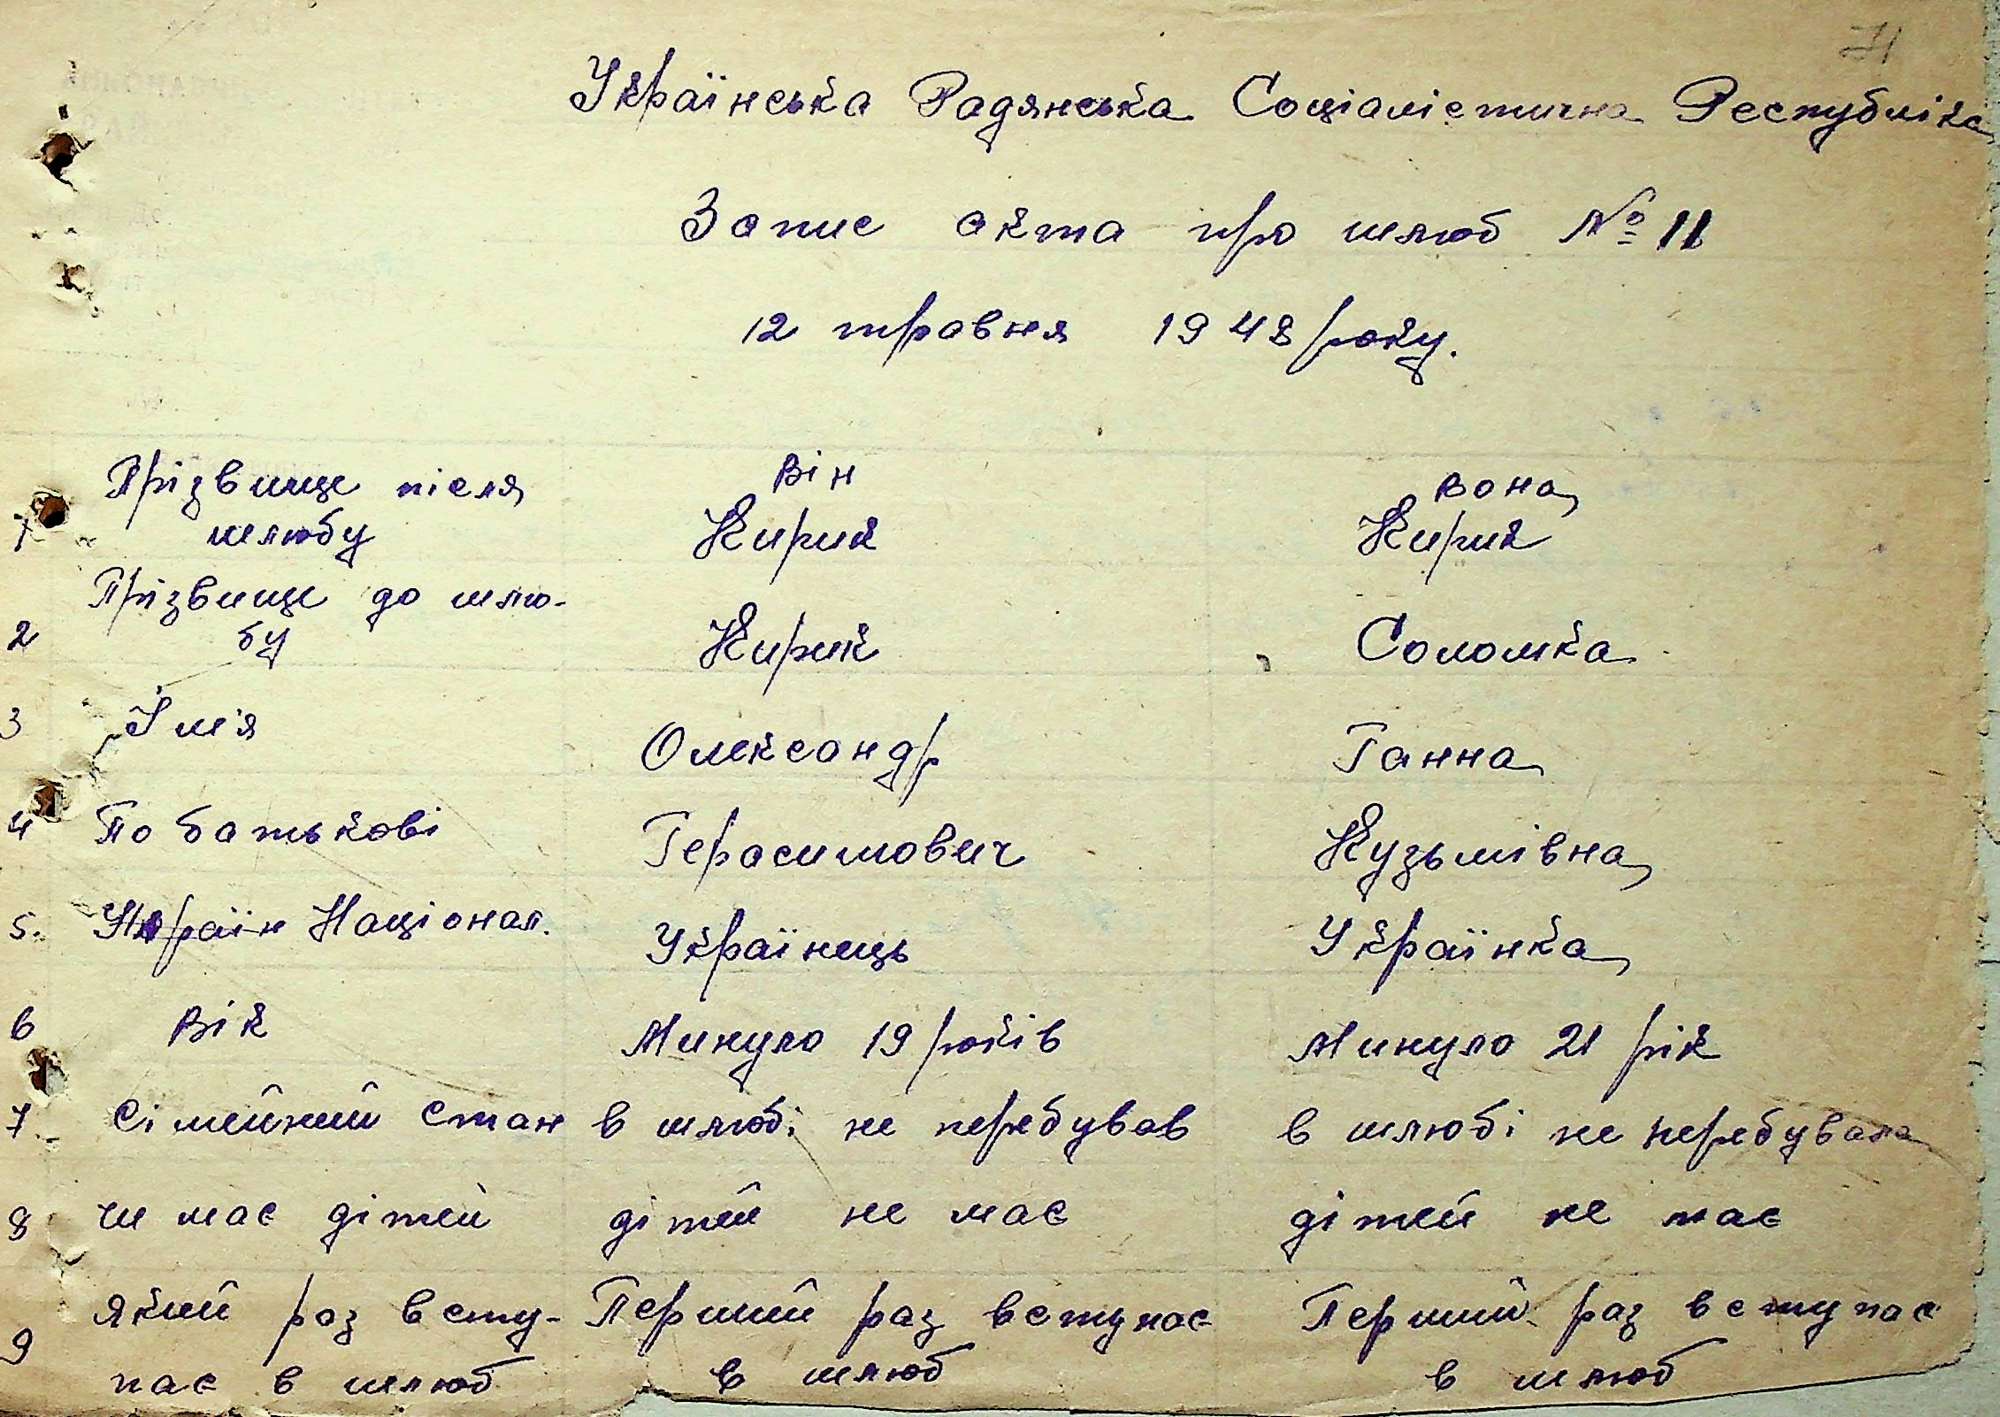 71
Українська Радянська Соціалістична Республіка
Запис акта про шлюб № 11
12 травня 1948 року.
Він Вона
Прізвище після
1 шлюбу Кирик Кирик
Прізвище до шлю-
2 бу Кирик Соломка
3 Ім'я Олександр Ганна
4 По батькові Герасимович Кузьмівна
5. Націонал. Українець Українка
6 Вік Минуло 19 років Минуло 21 рік
7 Сімейний стан в шлюбі не перебував в шлюбі не перебувала
8 чи має дітей дітей не має дітей не має
9 який раз всту- Перший раз вступає Перший раз вступає
пає в шлюб в шлюб в шлюб